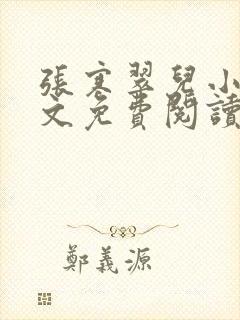 張寒翠兒小
文免費閱讀
鄭義源